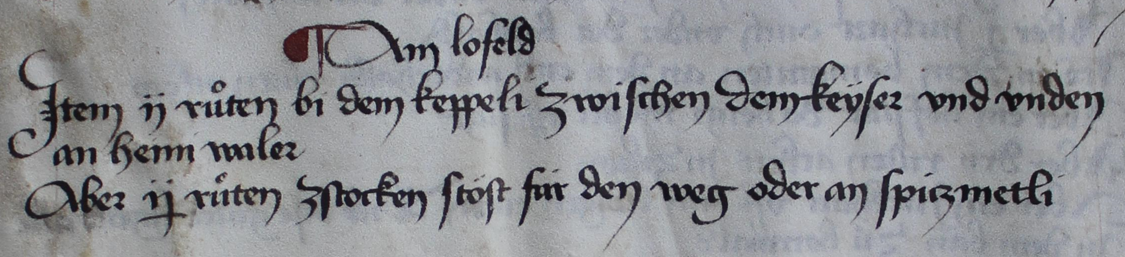 ¶ Am lofeld
Item ij růten bi dem keppeli zwischen dem keyser vnd vnden
an henni waler
Aber ij růten zstocken stost für den weg oder an spiczmetli